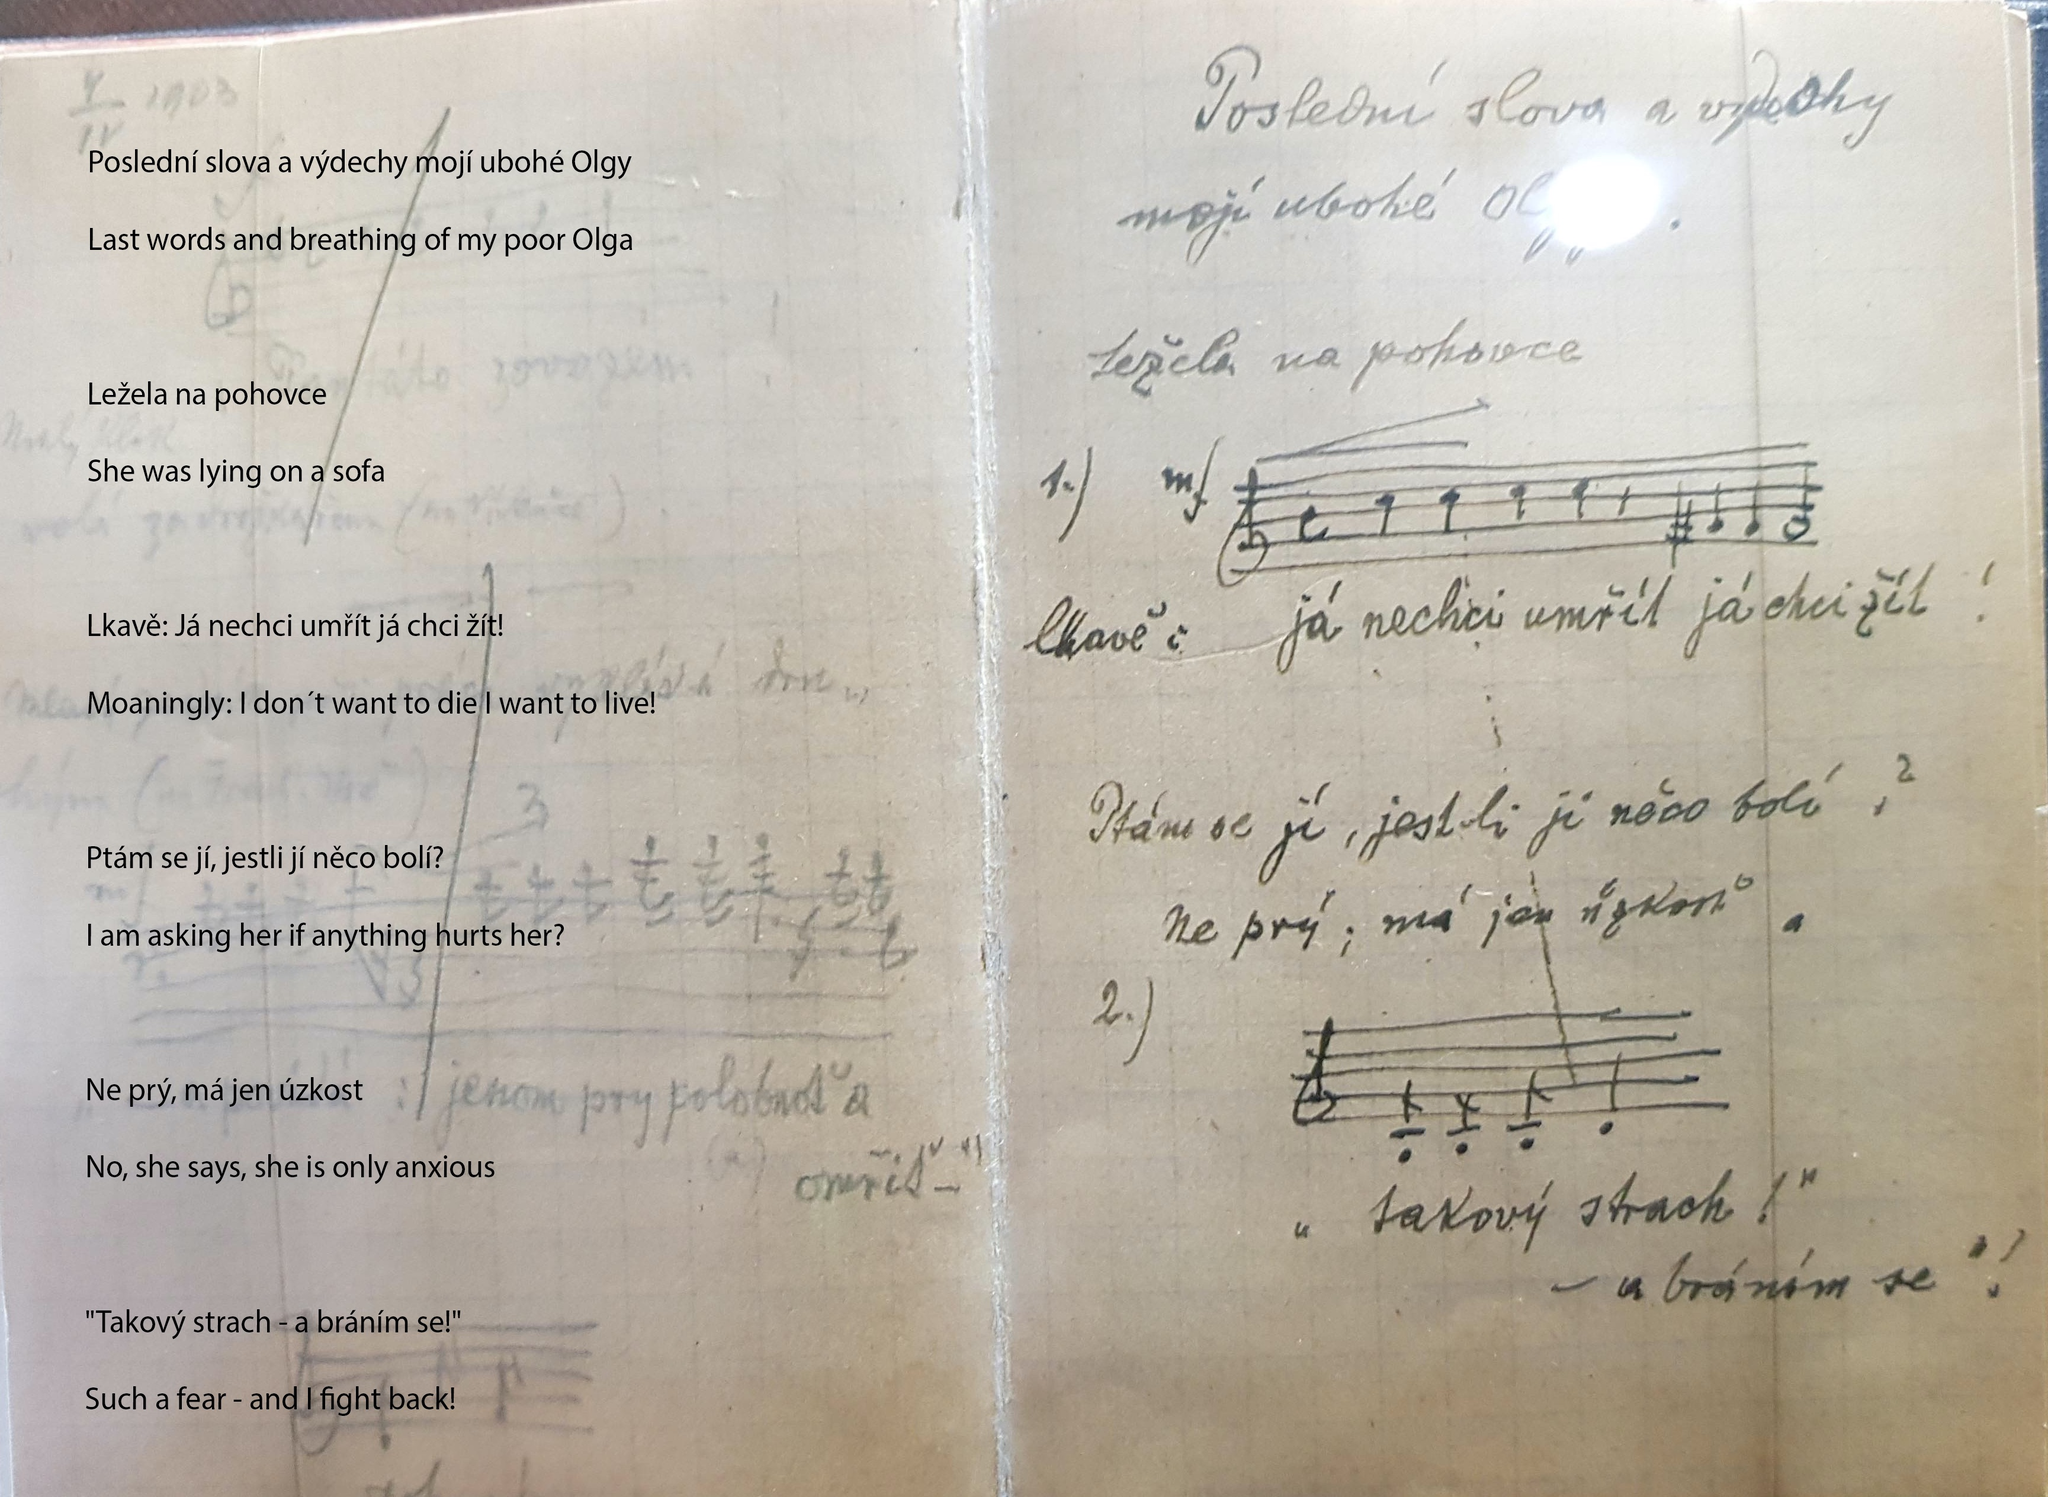 IV 1903
Poslední slova a výdechy mojí ubohé Olgy
Last words and breathing of my poor Olga
Ležela na pohovce
She was lying on a sofa
Lkavě: Já nechci umřít já chci žít!
Moaningly: I don´t want to die I want to live!
Ptám se jí, jestli jí něco bolí?
I am asking her if anything hurts her?
Ne prý, má jen úzkost
No, she says, she is only anxious
"Takový strach - a bráním se!"
Such a fear - and I fight back!
3
3
: jenom prý
Poslední slova a výdechy
mojí ubohé Olgy.
Ležela na pohovce
1.) mf
lkavě: já nechci umřít já chci žít!
Ptám se jí, jestli jí něco bolí?
Ne prý; má jen úzkost.
2.)
„takový strach!"
– a bráním se"!